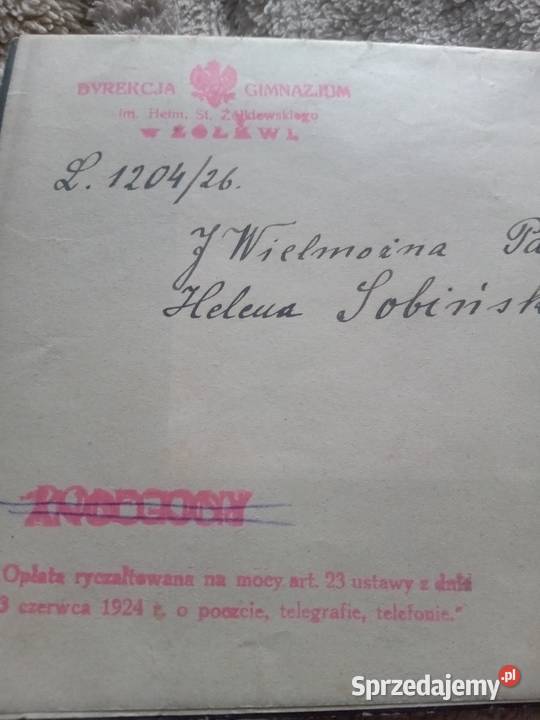 DYREKCJA GIMNAZJUM
im. Hetm. St. Żółkiewskiego
W ŻÓŁKWI.
L. 1204/26.
J Wielmożna Pa
Helena Sobińsk
Opłata ryczałtowana na mocy art. 23 ustawy z dnia
3 czerwca 1924 r. o poczcie, telegrafie, telefonie."
Sprzedajemy.pl